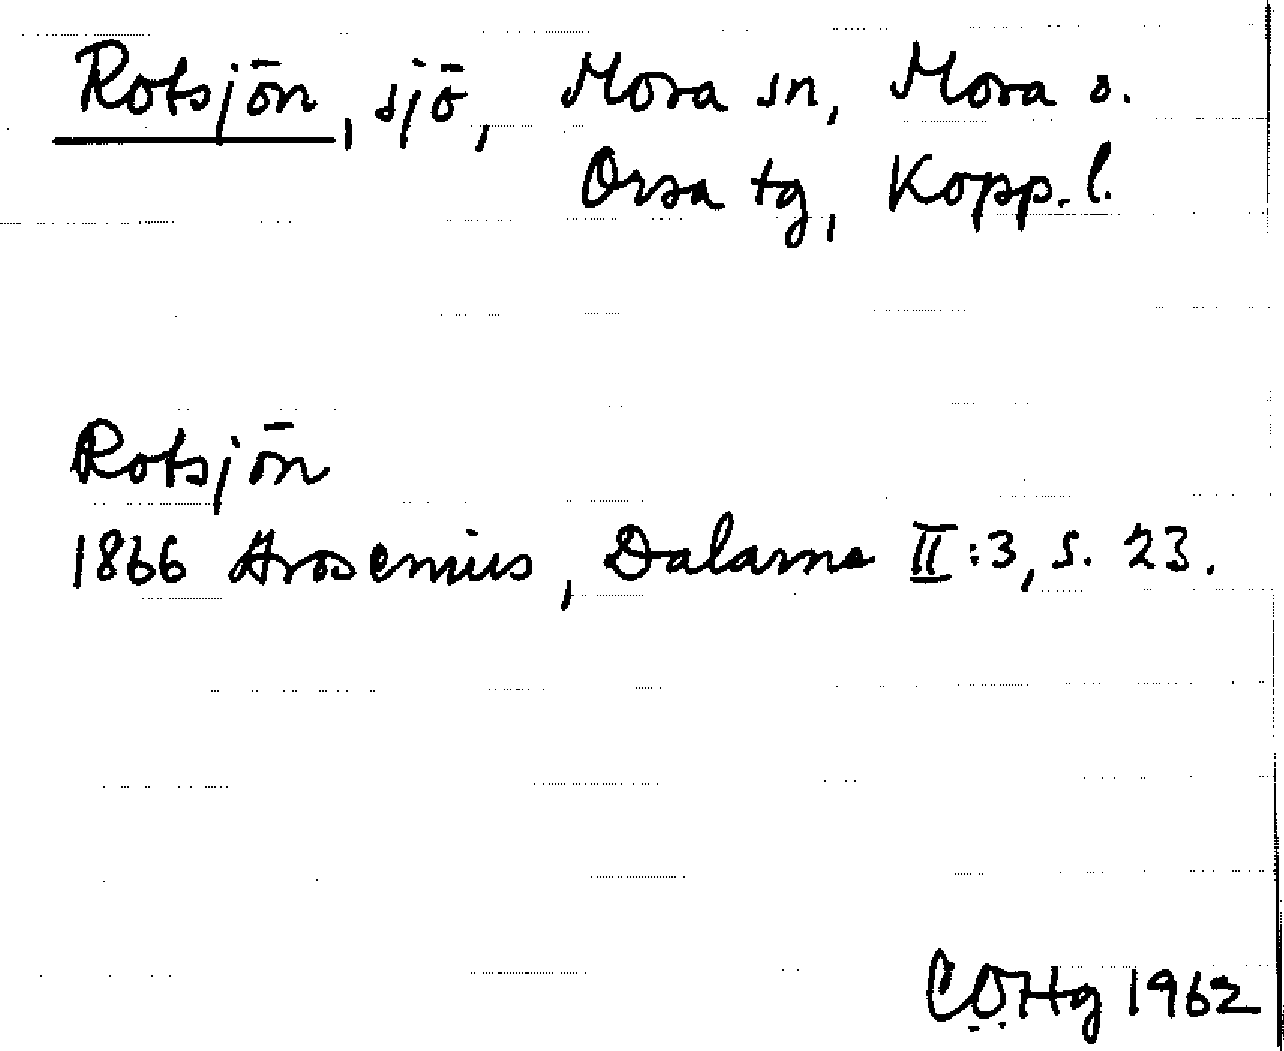 Rotsjön, sjö, Mora sn, Mora s.
Orsa tg, Kopp. l.
Rotsjön
1866 Arosenius, Dalarne II:3, s. 23.
COHg 1962